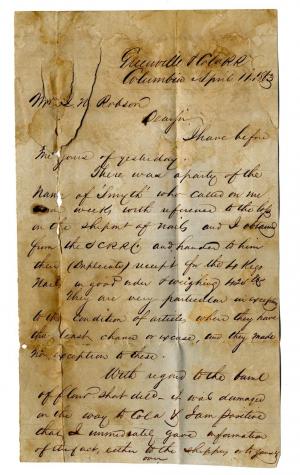 Greenville & Cola RR
Columbia April 11. 1873
Mr. J. N. Robson
Dear Sir
I have before
me yours of yesterday.
There was a party of the
name of "Smyth" who called on me
some weeks with reference to the loss
in the shipmt of nails and I obtained
from the SCRR Co and handed to him
their (Duplicate) receipt for the 40 Kegs
Nails in good order & weighing
They are very particular in except
to the condition of articles, where they have
the least chance or excuse, and they made
no exception to these.
With regard to the barrel
of flour Shot died it was damaged
on the way to Cola & I am positive
that I immediately gave information
of the fact, either to the shipper or to
over